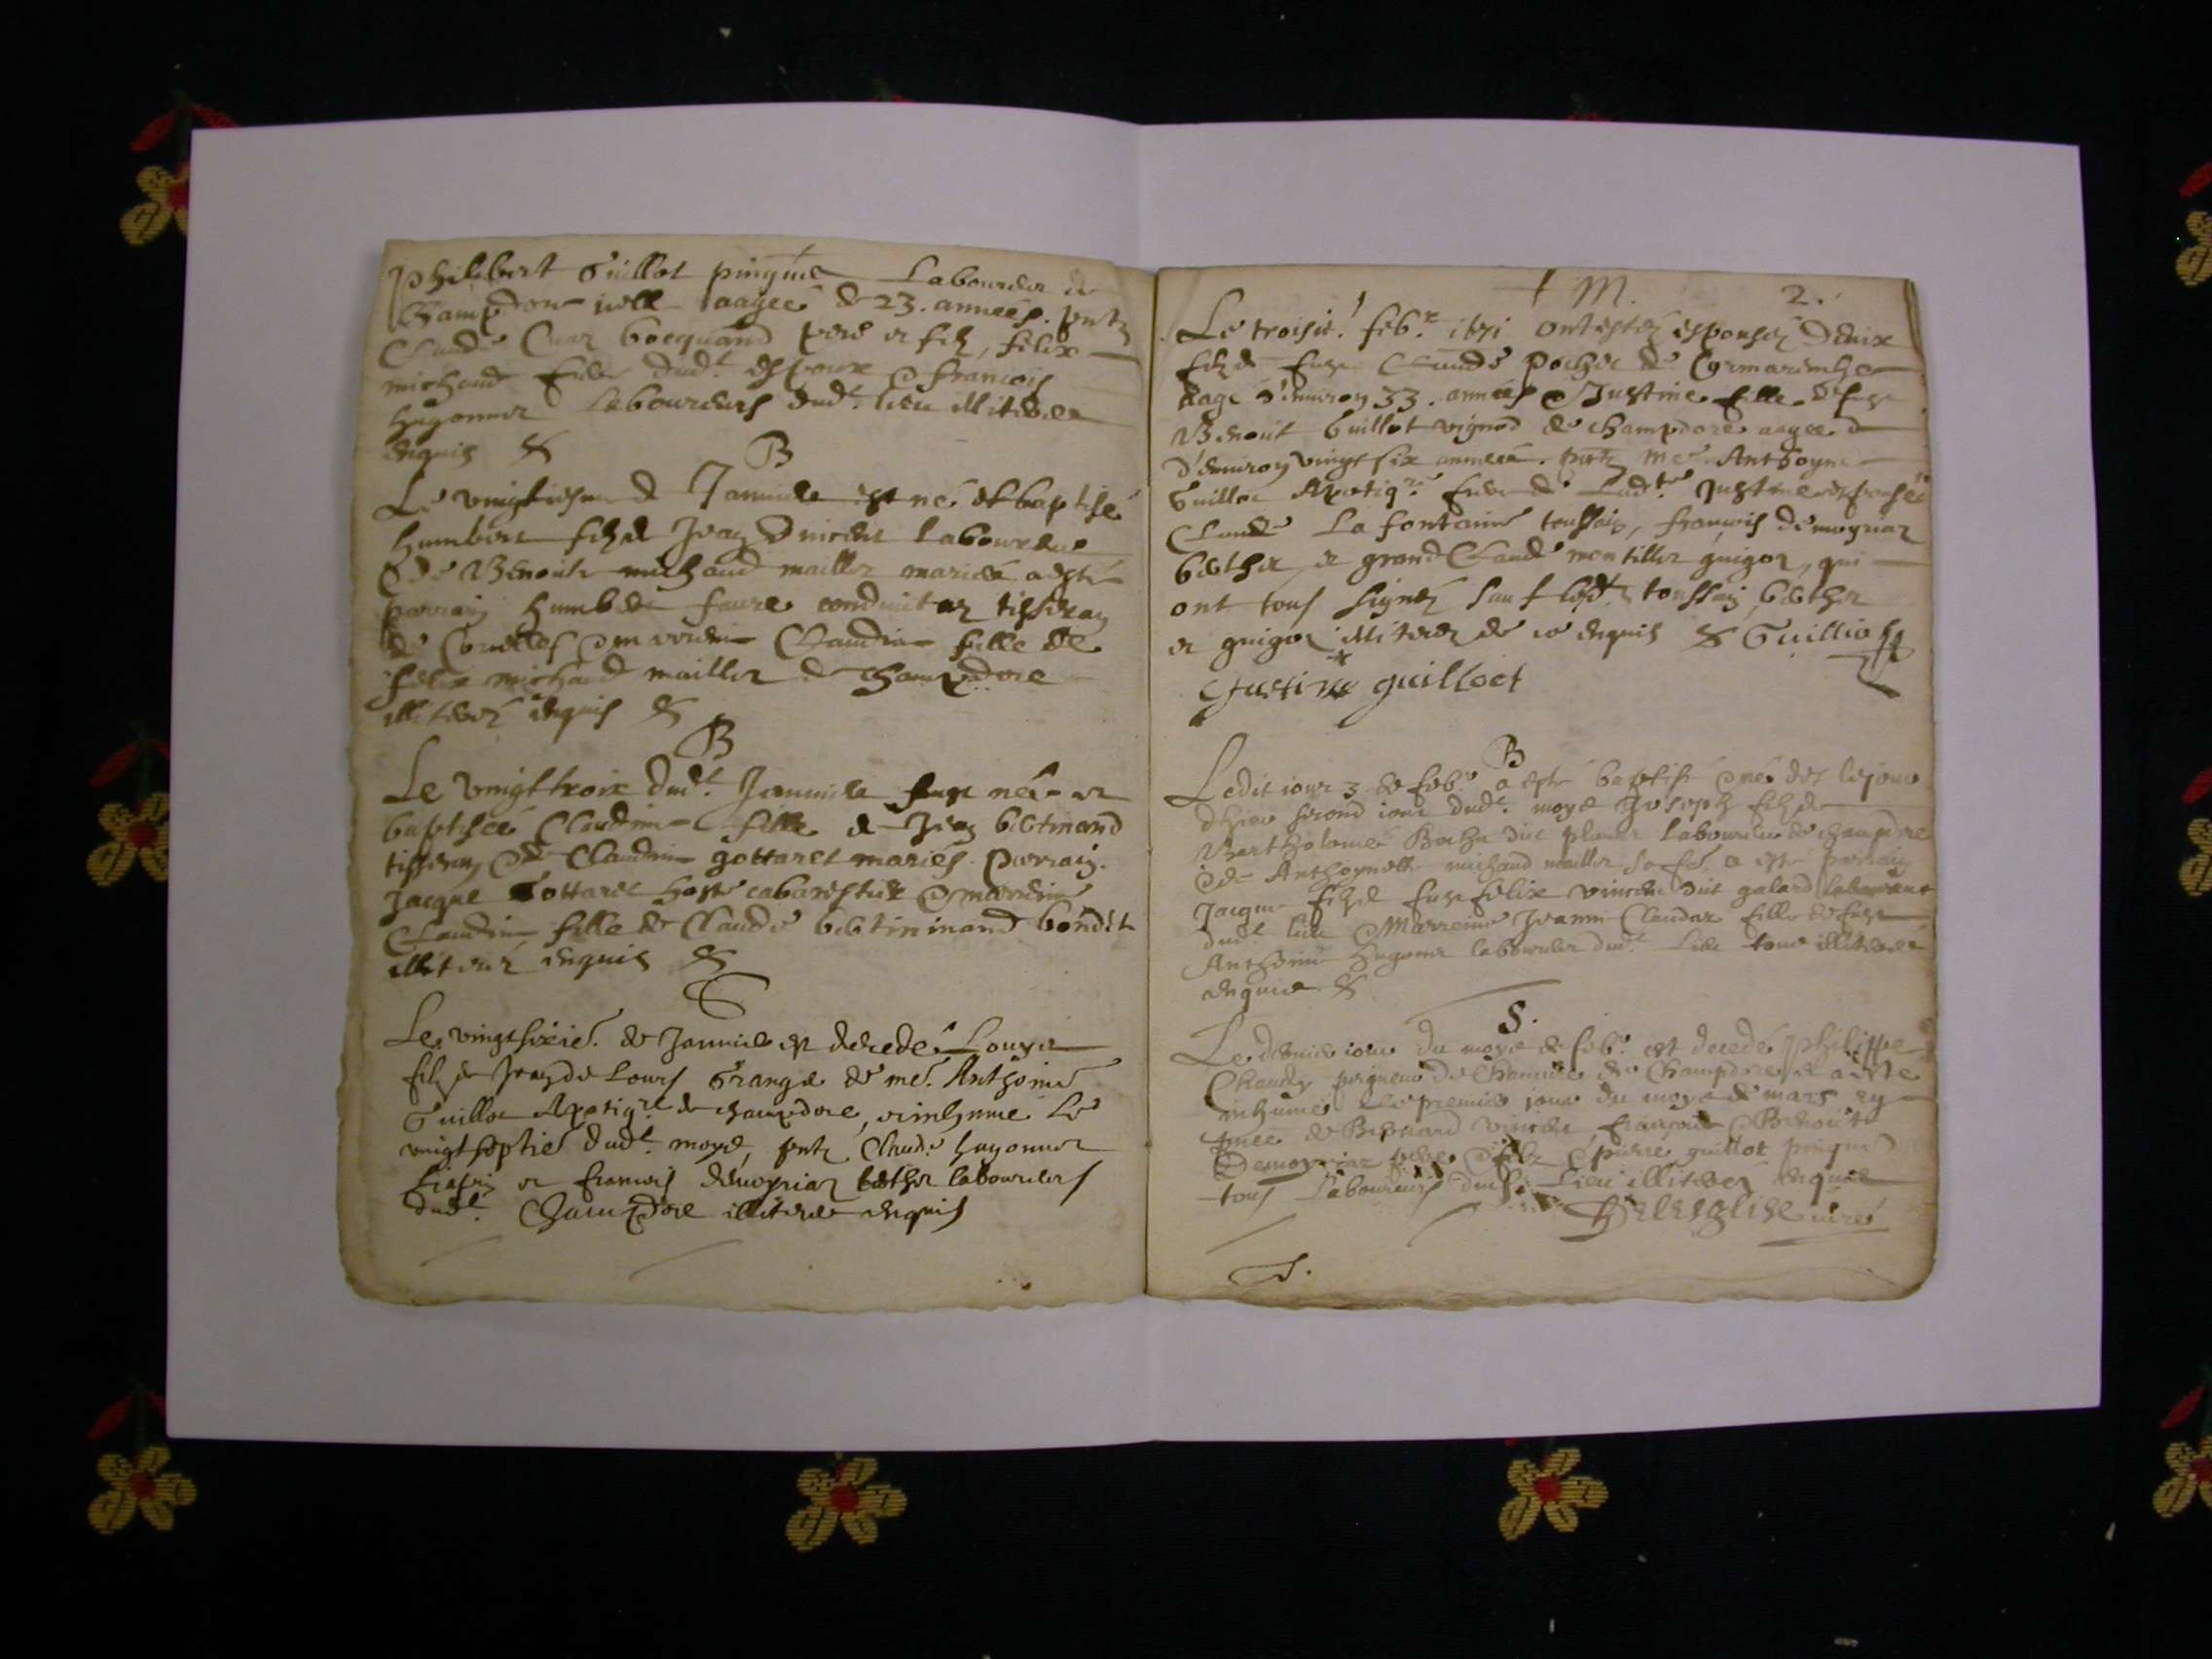 philibert Guillot pingud Laboureur de
Champdore icelle aagee de 23. années. pntz
Claude Cuaz bocquand pere et filz, felix
michaud frere dudt. espoux & francois
hugonnet Laboureurs dudt. lieu illiterez
enquis &
B
Le vingtiesme de Januier est né et baptisé
humbert filz de Jean Vincent laboureur
& de Benoite michaud maillet mariés a esté
parrain humbert faure conduiteur tisseran
de & marreine Claudine fille de
felix michaud maillet de Champdore
illiterez enquis &
B
Le vingt trois dudt. Januier fust née et
baptisée Claudine fille de Jean betinand
tisseran & de Claudine gottaret mariés. Parrain.
Jacque Gottaret hoste cabarestier & marreine
Claudine fille de Claude bettininand bondet
illiterez enquis &
S
Le vingtsixie. de Januier est decedé Louys
filz de Jean de Louys Granger de me. Anthoine
Guillot Apotiqre de champdore, et inhumé le
vingtseptie dudt. moys, pntz Claude hugonnet
et francois demoyriaz bether laboureurs
dudt. Champdore illiterez enquis
+ M. 2.
Le troisie.! febr. 1671 ont estez espousez Denix
filz de fust Claude Pochet de Cormaranche
aagé d'enuiron 33. années & Justine fille de fust
Benoit Guillot vignod de champdore aagee
d'enuiron vingt six années. pntz me. Anthoyne
Guillot Apotiqre frere de Ladte Justine espousée
Claude La fontaine toussain, francois demoyriaz
bether et grand Claude montillet guigoz, qui
ont tous signez sauf lesdtz toussain, bether
et guigoz illiterez de ce enquis & Guilliot
Justine guilloct
B
Ledit iour 3 de feb. a esté baptisé & né des le jour
d'hier second iour dudt. moys Joseph filz de
Bartholomé Bochu dit plaant Laboureur de champdore
& de Anthoynette michaud maillet sa fe. a esté parrain
Jacque filz de fust felix vincent dit galand laboureur
dudt. lieu & Marreine Jeanne Claudaz fille de fust
Anthoine hugonet laboureur dudt. Lieu tous illiterez
enquis &
S.
Le dernier iour du moys de feb. est decedé philippe
Chaudy peigneur de Chanure de Champdore & a esté
inhumé Le premier iour du moys de mars en
pnce de Bernard vincent, francois & Benoit
Demoyriaz freres & felix & pierre guillot pingud
tous Laboureurs dudt. Lieu illiterez enquis
Delesglise curé
S.